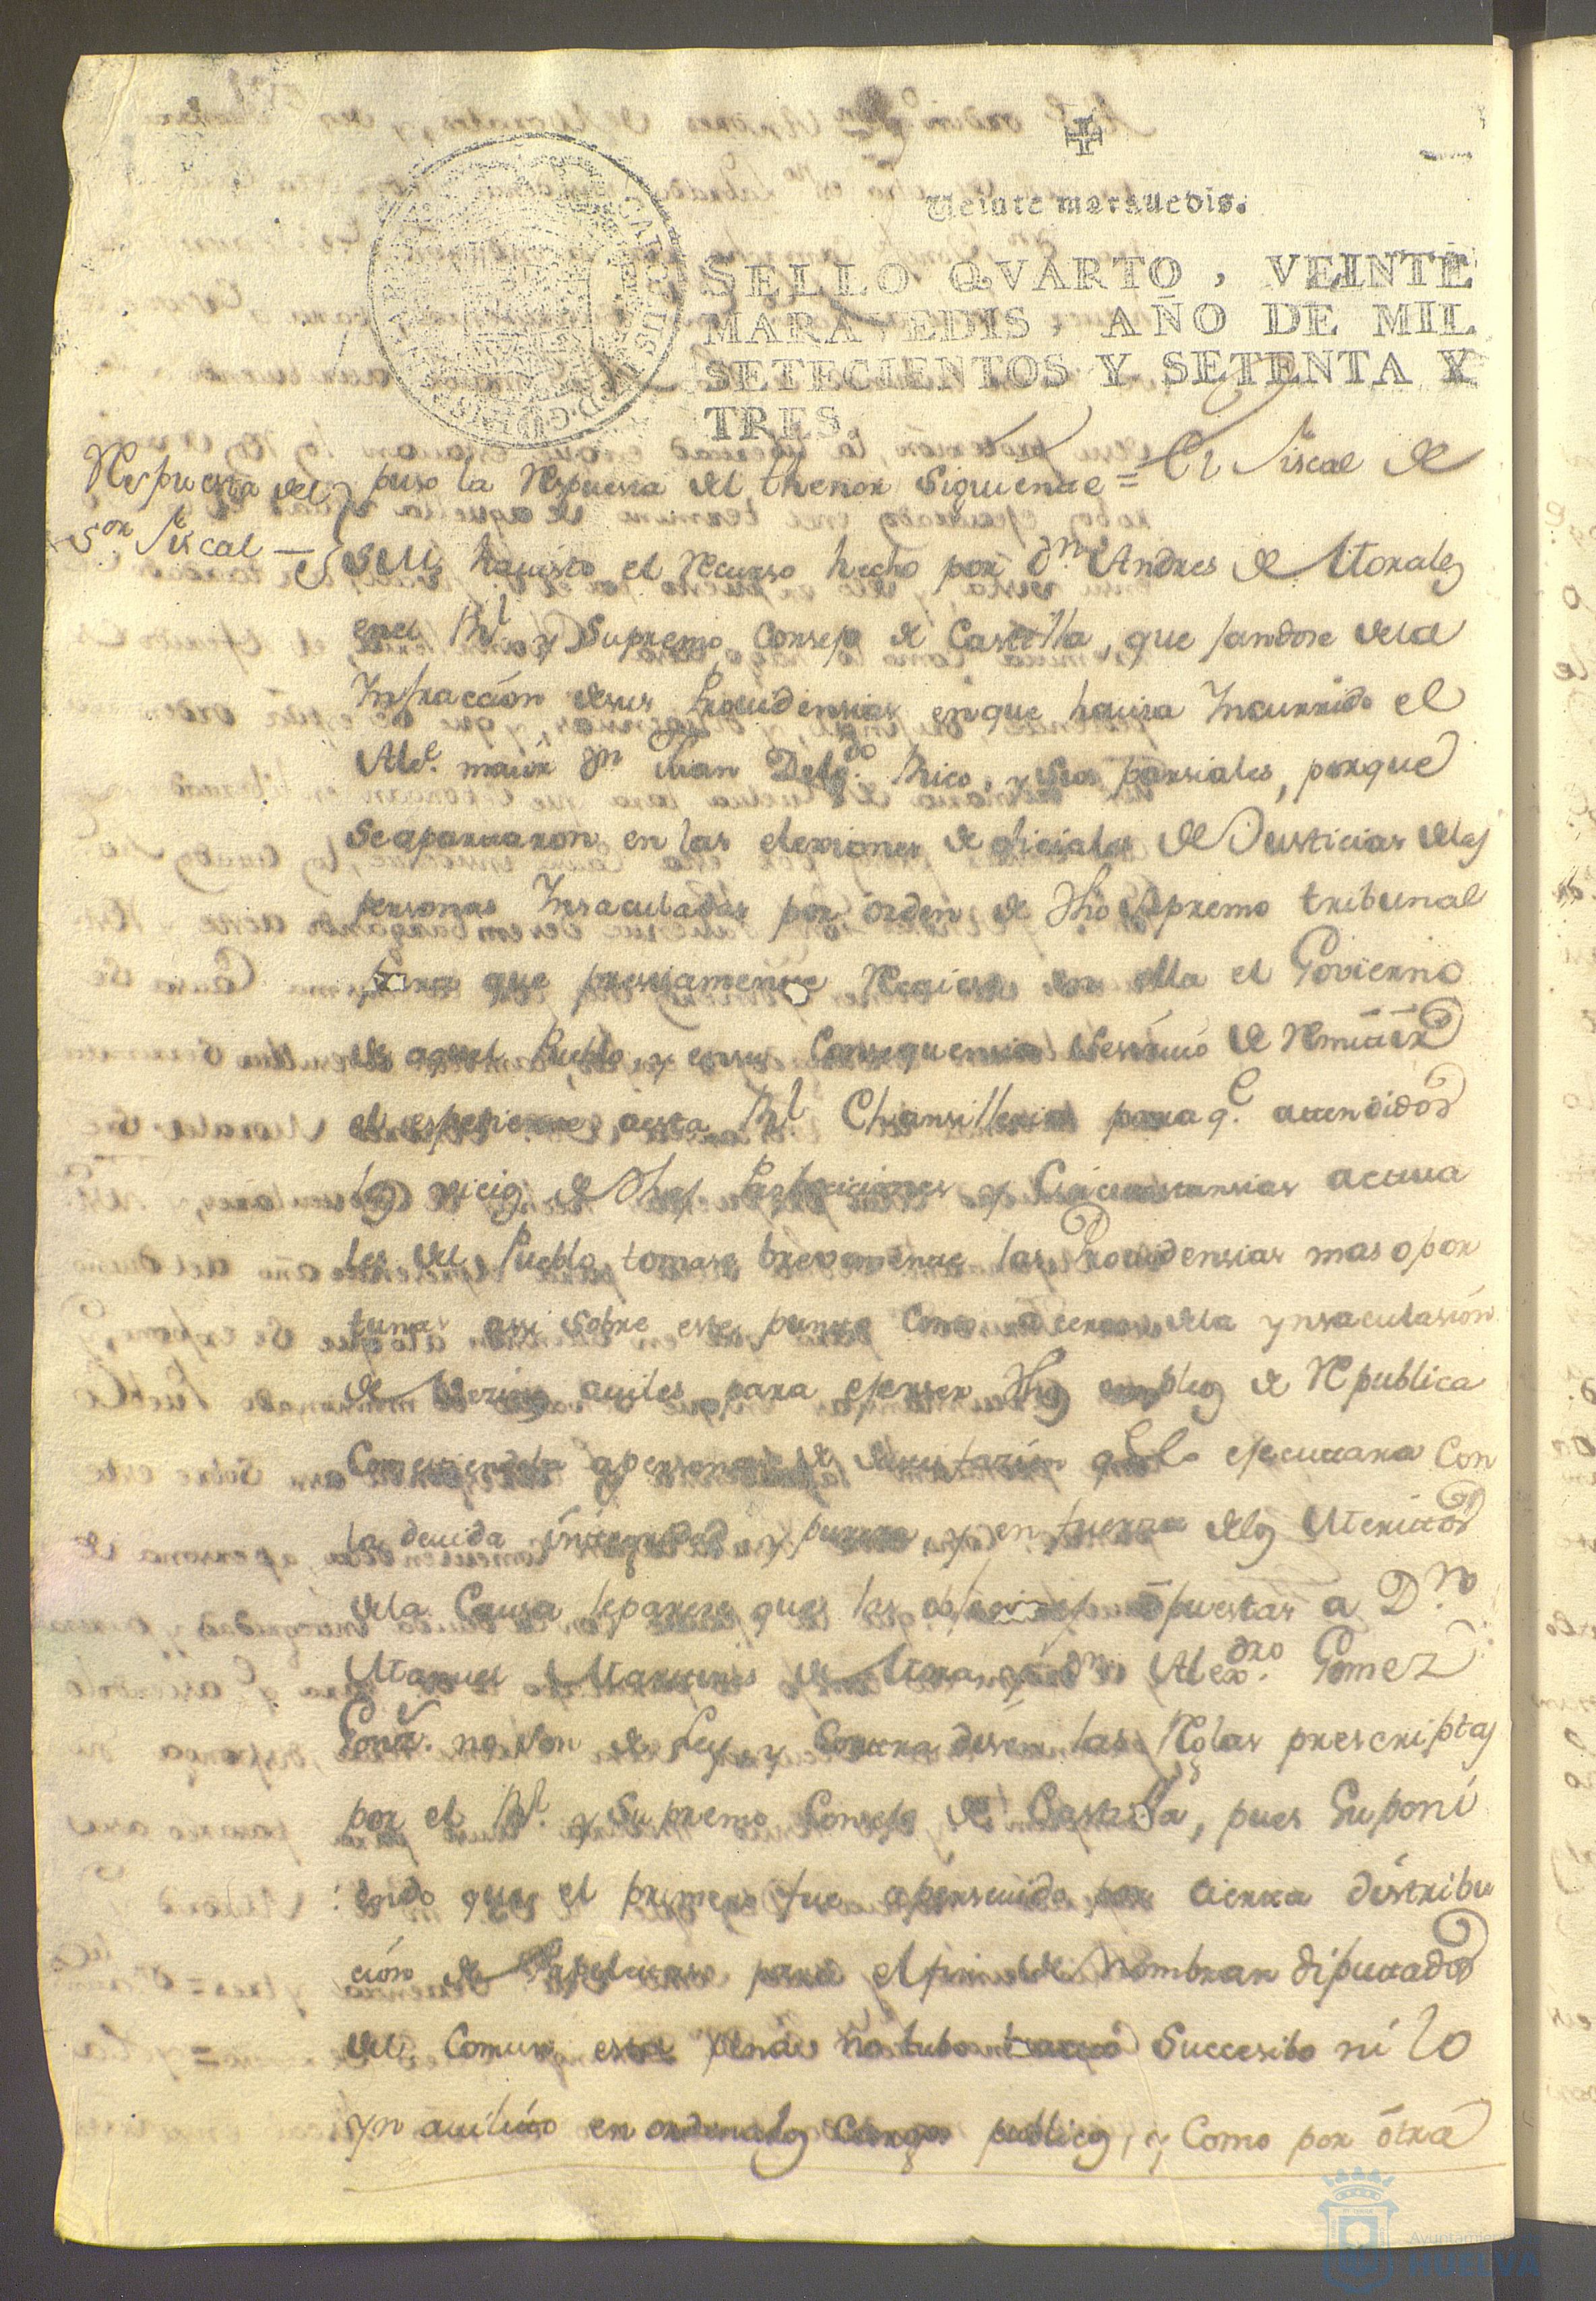 Veinte marauedis.
SELLO QVARTO, VEINTE
MARAVEDIS, AÑO DE MIL
SETECIENTOS Y SETENTA Y
TRES.
Respuesta del
Sor. Fiscal
puso la Respuesta del thenor siguiente = El Fiscal de
SM. hauisto el Recurso hecho por Dn. Andres de Morales
en el Rl. y Supremo Consejo de Castilla, quejandose dela
Infraccion desus Prouidensias enque hauia Incurrido el
Alce. maior Dn. Juan Delgdo. Rico, y sus parsiales, porque
se apartaron en las elexiones de oficiales de Justicias delas
personas Insaculadas por orden de dho supremo tribunal
para que presisamente Recaiese en ella el Govierno
de aquel Pueblo, y ensus Consequensia se siruio de Remitir
el espediente aesta Rl. Chansilleria para qe. atendidos
los vicios de dhas elecciones y Circunstansias actua
les del Pueblo tomase brevemente las Prouidensias mas opor
tunas assi sobre este punto como aserca dela ynsaculasion
de Vezinos auiles para ejerser dhos empleos de Republica
Cometiendola apersona de sustazion qe. lo ejecutara con
la deuida integridad y pureza, y en fuerza delos Meritos
dela Causa leparese que las objeciones opuestas a Dn.
Manuel Martines de Mora, y Dn. Alexdro. Gomez
Gonz. no son de Ley, y Contradisen las Reglas prescriptas
por el Rl. y Supremo Consejo de Castilla, pues suponi
endo que el primero fue apersiuido por cierta distribu
cion de Papeletas para el fin de Nombrar diputados
del Comun esta pena no tubo tracto Successibo ni lo
ynauilito en orden alos Cargos publicos, y Como por otra
Ayuntamiento
HUELVA